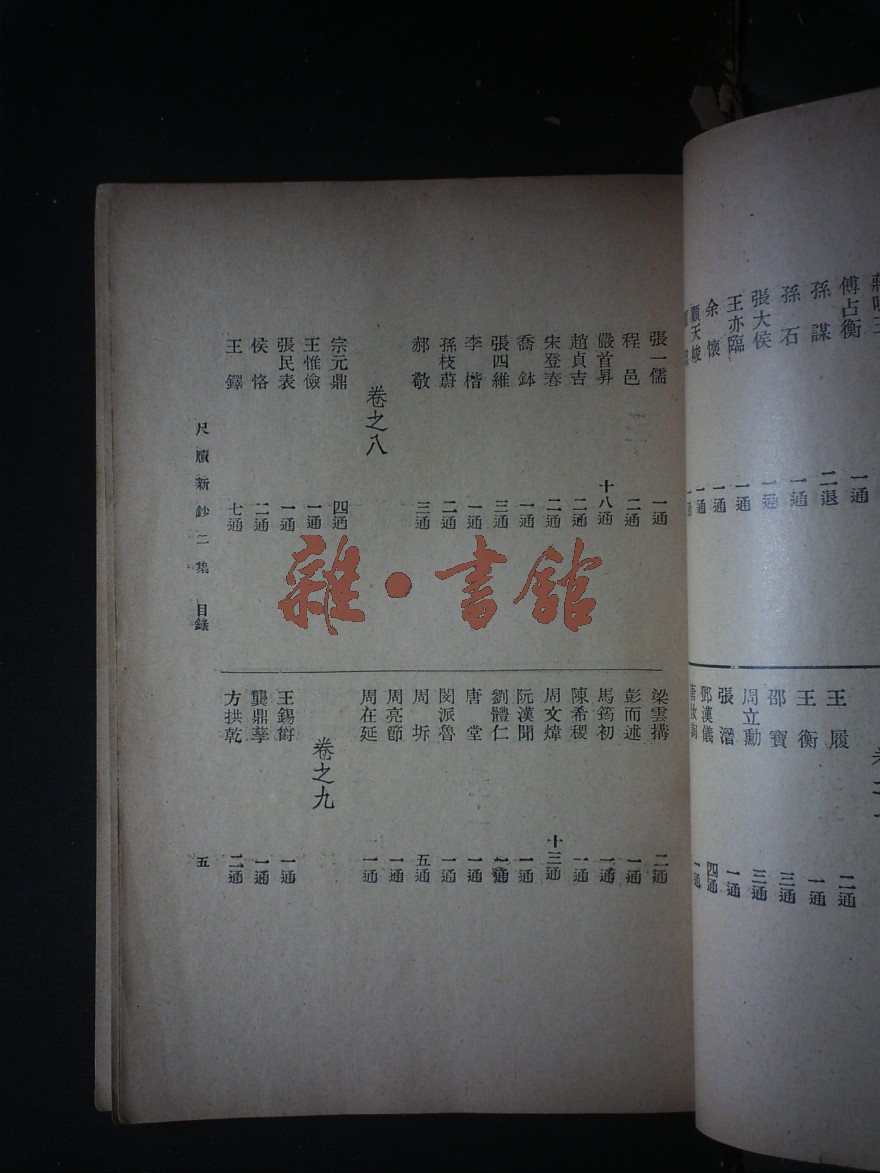 傅占衡 一通
孫謀 二退
孫石 一通
張大侯 一通
王亦臨 一通
余懷 一通
顧天峻 一通
王履 二通
王衡 一通
邵寶 三通
周立勳 三通
張潛 一通
鄧漢儀 四通
張一儒 一通
程邑 二通
嚴首昇 十八通
趙貞吉 二通
宋登春 二通
喬鉢 一通
張四維 三通
李楷 一通
孫枝蔚 二通
郝敬 三通
卷之八
宗元鼎 四通
王惟儉 一通
張民表 一通
侯恪 二通
王鐸 七通
梁雲搆 二通
彭而述 一通
馬筠初 一通
陳希稷 一通
周文煒 十三通
阮漢聞 一通
劉體仁 一通
唐堂 一通
閔派魯 一通
周圻 五通
周亮節 一通
周在延 一通
卷之九
王錫爵 一通
龔鼎孳 一通
方拱乾 二通
尺牘新鈔二集 目錄 五
雜·書館